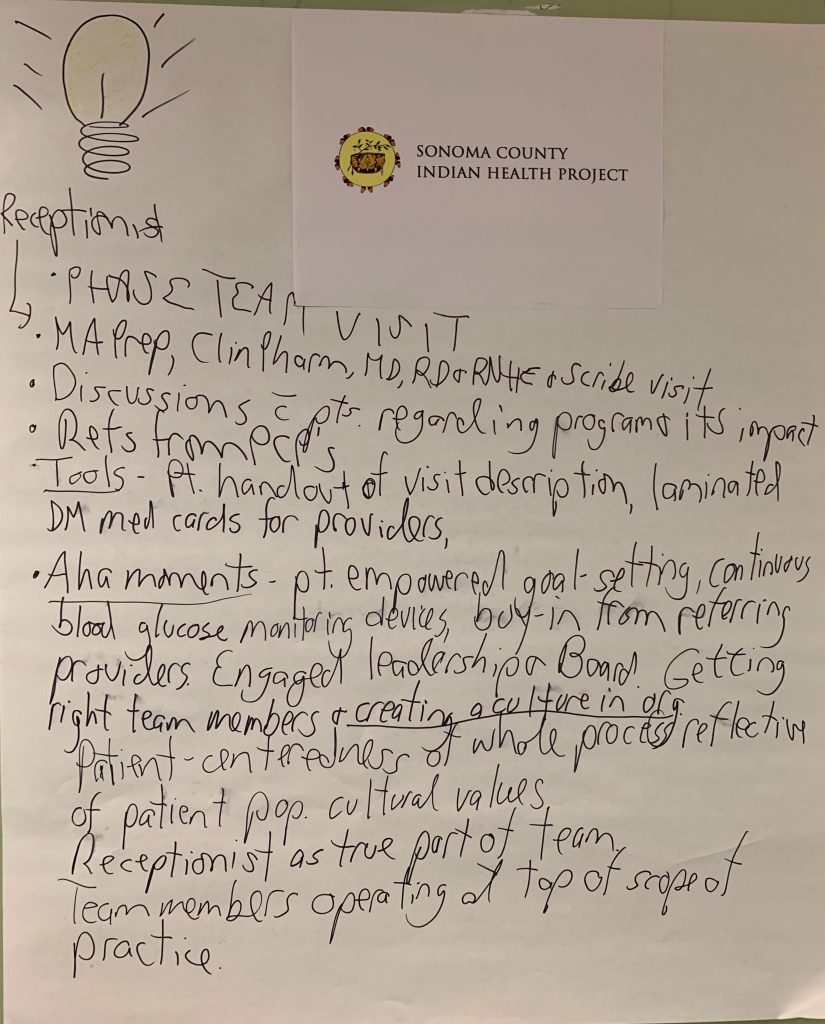 SONOMA COUNTY
INDIAN HEALTH PROJECT
Receptionist
• PHASE TEAM VISIT
• MA Prep, Clin Pharm, MD, RD & RNHE & scribe visit
• Discussions c̄ pts. regarding program & its impact
• Refs from PCP's
• Tools - Pt. handout of visit description, laminated
DM med cards for providers,
• Aha moments - pt. empowered goal-setting, continuous
blood glucose monitoring devices, buy-in from referring
providers. Engaged leadership & Board. Getting
right team members & creating a culture in org
Patient-centeredness of whole process reflective
of patient pop. cultural values
Receptionist as true part of team.
Team members operating at top of scope of
practice.